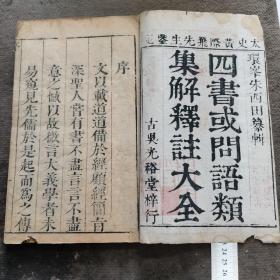 太史黃際飛先生鑒定
環峯朱酉田纂輯
四書或問語類
集解釋註大全
古吳光裕堂梓行
序
文以載道道備於經顯經簡旨
深聖人嘗有書不盡言言不盡
意之憾以故微言大義學者未
易窺見先儒於是起而為之傳